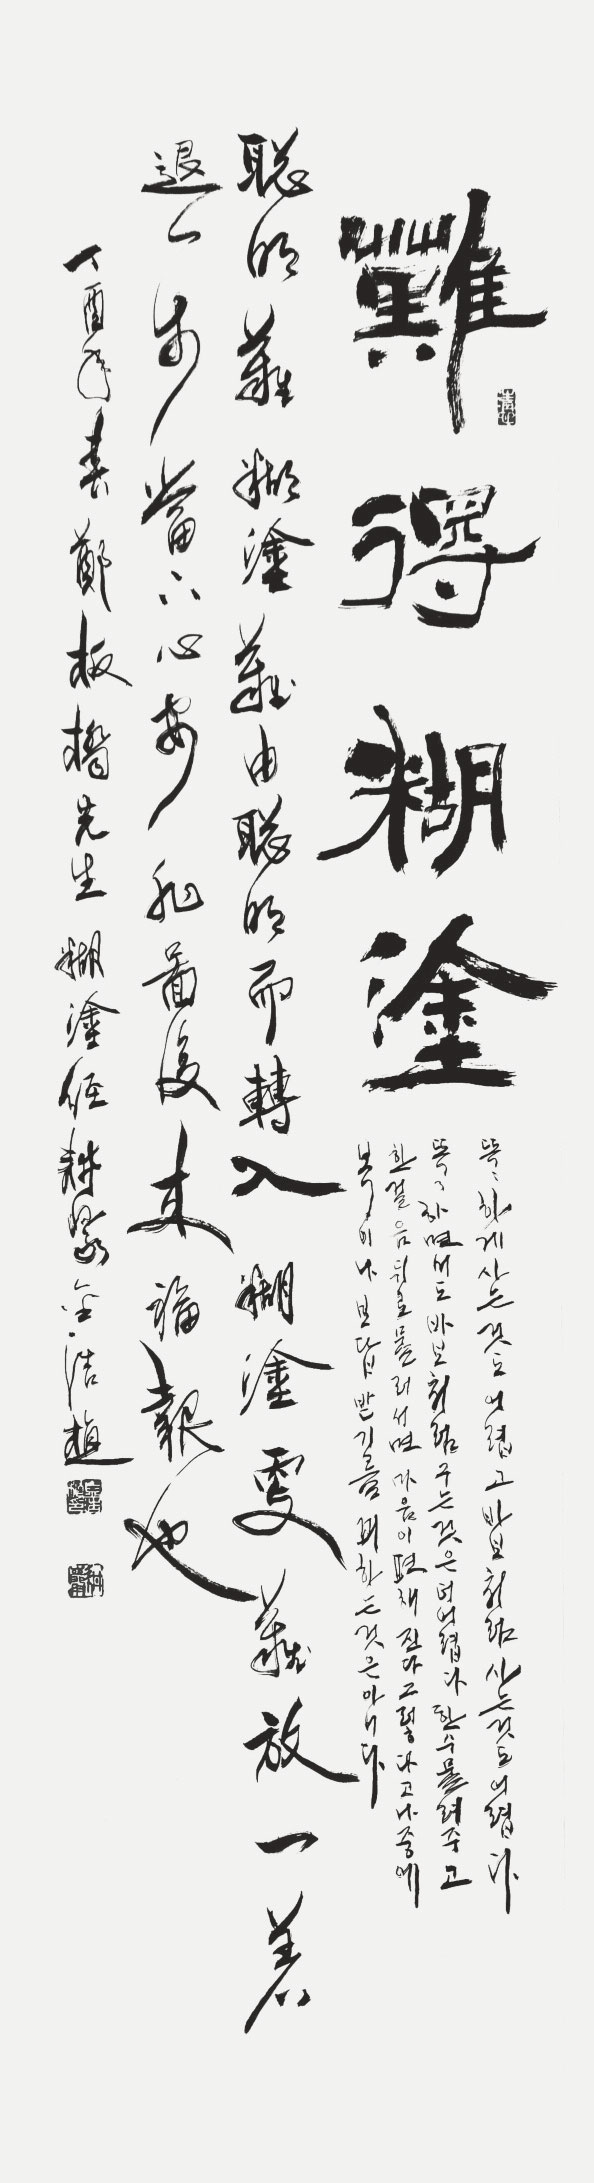 難得糊塗
똑〃하게 사는 것도 어렵고 바보처럼 사는 것도 어렵다
똑〃하면서도 바보처럼 구는 것은 더 어렵다 한수 물려주고
한걸음 뒤로 물러서면 마음이 편해진다 그렇다고 나중에
복이나 보답받기를 꾀하는 것은 아니다
聰明難糊塗難由聰明而轉入糊塗更難放一着
退一步當下心安非圖後來福報也
丁酉年春鄭板橋先生糊塗經耕 金浩